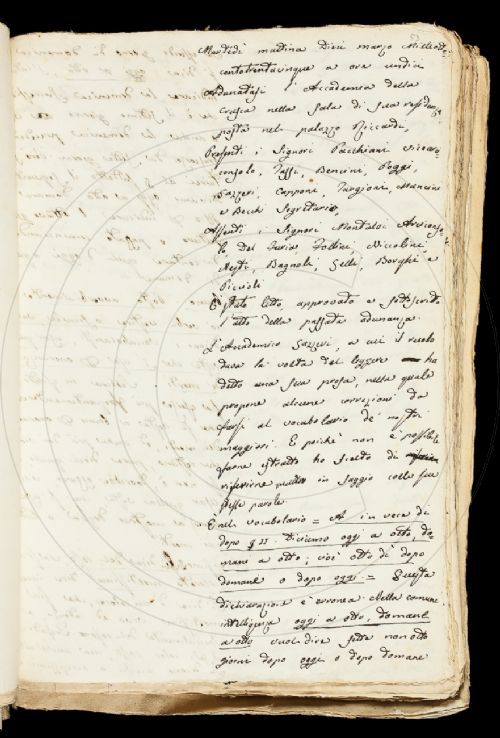 Martedì mattina Dieci marzo Milleot-
centotrentacinque a ore undici
Adunatasi l'Accademia della
Crusca nella Sala di Sua residenza
posta nel palazzo Riccardi,
Presenti i Signori Pacchiani Vicearci-
consolo, Tassi, Bencini, Poggi,
Gazzeri, Capponi, Targioni, Mancini
e Becchi Segretario,
Assenti i Signori Montalvi Arciconso-
lo Del Furia Follini, Niccolini,
Nesti, Bagnoli, Gelli, Borghi e
Piccioli
È stato letto, approvato e sottoscritto
l'atto della passata adunanza.
L'Accademico Gazzeri, a cui il ruolo
dava la volta del leggere ha
detto una sua prosa, nella quale
propone alcune correzioni da
farsi al vocabolario de' nostri
maggiori. E poiché non è possibile
farne estratto ho scelto di
riferirne in saggio colle sue
stesse parole.
E nel vocabolario = A in vece di
dopo § II. Diciamo oggi a otto, do-
mane a otto; cioè otto dì dopo
domane o dopo oggi = Questa
dichiarazione è erronea. Nella comune
intelligenza oggi a otto, domane
a otto vuol dire sette non otto
giorni dopo oggi o dopo domane